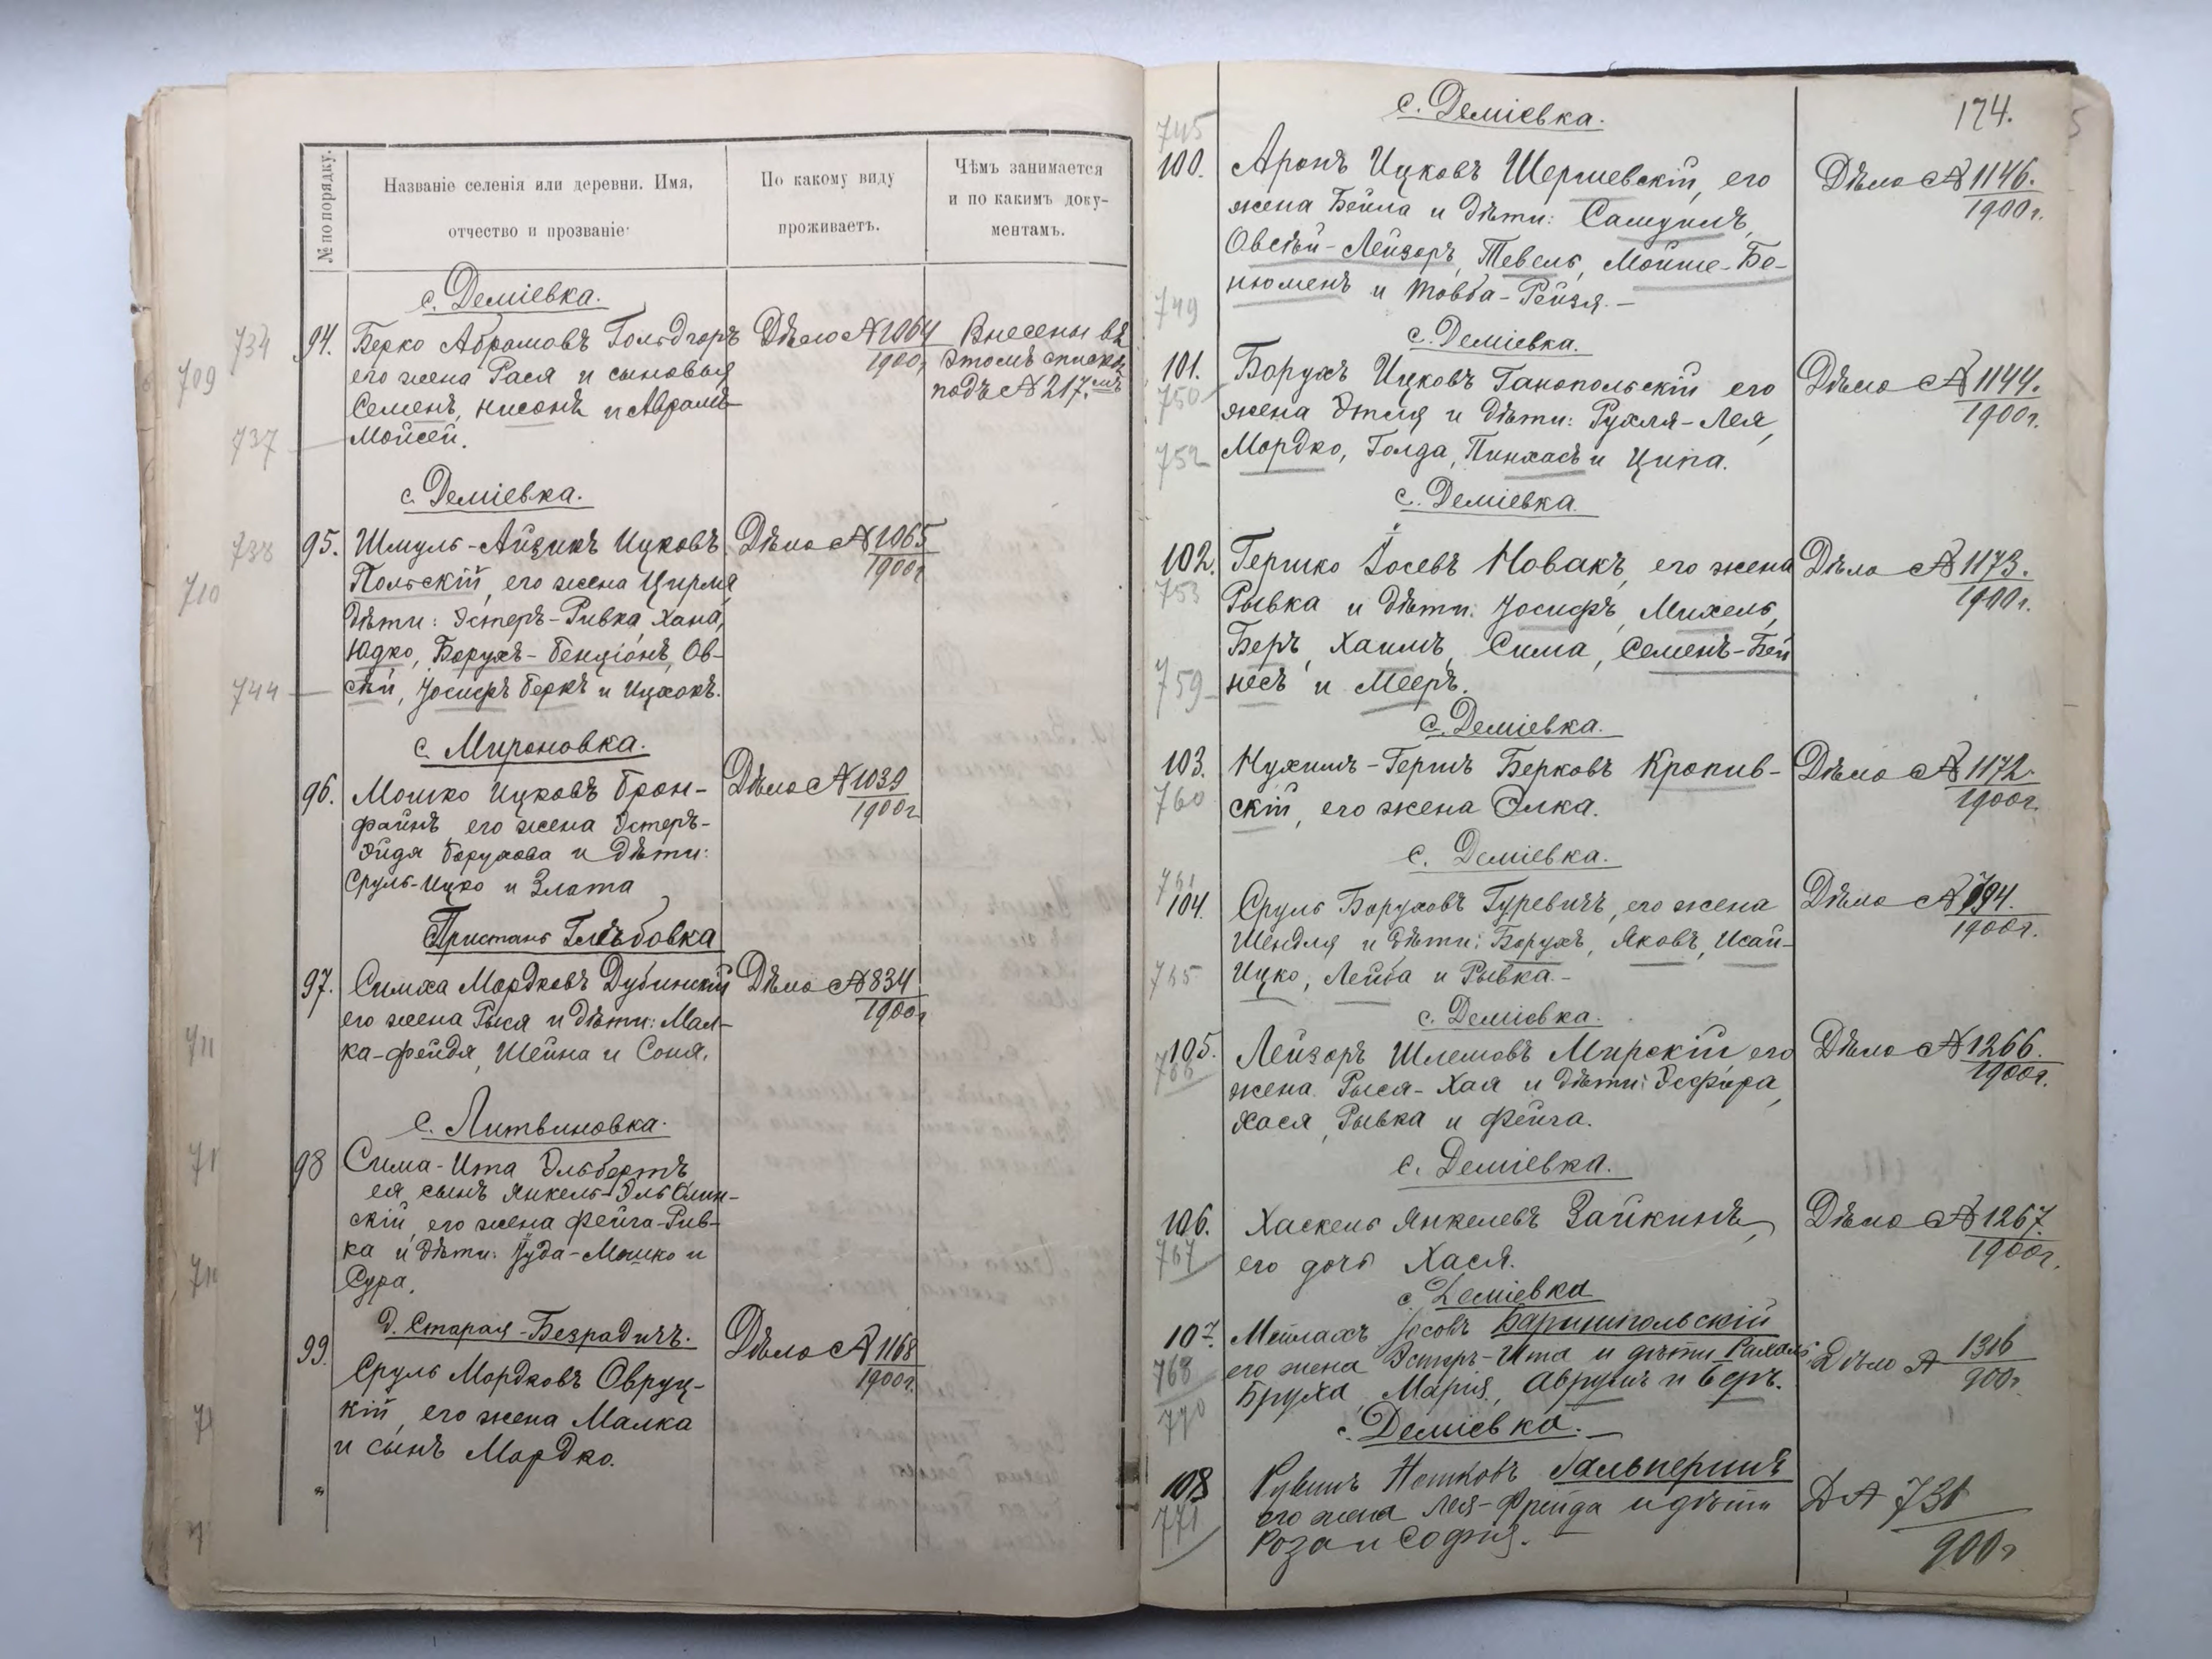 № по порядку.
Названіе селенія или деревни. Имя,
отчество и прозваніе
По какому виду
проживаетъ.
Чѣмъ занимается
и по какимъ доку-
ментамъ.
с. Деміевка.
734
709
94. Берко Абрамовъ Гольдгоръ Дѣло № 1064 Внесены въ
его жена Рася и сыновья 1900г этомъ списки
Семенъ, Нисонъ и Аврамъ подъ № 217.мъ
737 Мойсей.
с. Деміевка.
738
710
95. Шмуль-Айзикъ Ицковъ Дѣло № 1065
Польскій, его жена Цирля 1900г
дѣти: Эстеръ-Ривка, Хана,
Юдко, Борухъ-Бенціонъ, Ов-
744 сѣй, Іосифъ Беркъ и Ицхокъ.
с. Мироновка.
96. Мошко Ицковъ Брон- Дѣло № 1039
файнъ, его жена Эстеръ- 1900г
Эйдя Борухова и дѣти:
Сруль-Ицко и Злата
Пристань Глѣбовка
97. Симха Мордковъ Дубинскій Дѣло № 834
его жена Рыся и дѣти: Мал- 1900г
711 ка-Фейдя, Шейна и Соня.
с. Литвиновка.
98 Сима-Ита Эльбертъ
ея сынъ Янкель-Эльблин-
скій, его жена Фейга-Рив-
ка и дѣти: Іуда-Мошко и
Сура.
д. Старая-Безрадичъ.
99. Сруль Мордковъ Овруц- Дѣло № 1168
кій, его жена Малка 1900г.
и сынъ Мордко.
174.
с. Деміевка.
745
100. Аронъ Ицковъ Шершевскій, его Дѣло № 1146.
жена Бейла и дѣти: Самуилъ, 1900г.
Овсѣй-Лейзоръ, Тевель, Мойше-Бе-
749 нюменъ и Товба-Рейзя.-
с. Деміевка.
101. Борухъ Ицковъ Ганопольскій его Дѣло № 1144.
750 жена Этля и дѣти: Рухля-Лея, 1900г.
752 Мордко, Голда, Пинхасъ и Ципа.
с. Деміевка.
102. Гершко Іосевъ Новакъ, его жена Дѣло № 1173.
753 Рывка и дѣти: Іосифъ, Михель, 1900г.
Беръ, Хаимъ, Сима, Семенъ-Бей
759 несъ и Мееръ.
с. Деміевка.
103. Нухимъ-Гершъ Берковъ Кропив- Дѣло № 1172.
760 скій, его жена Элка. 1900г.
с. Деміевка.
761
104. Сруль Боруховъ Гуревичъ, его жена Дѣло № 794.
Шендля и дѣти: Борухъ, Яковъ, Исай- 1900г.
765 Ицко, Лейба и Рывка.-
с. Деміевка.
105. Лейзоръ Шлемовъ Мирскій его Дѣло № 1266.
766 жена Рыся-Хая и дѣти: Эсфира, 1900г.
Хася, Рывка и Фейга.
с. Деміевка.
106. Хаскель Янкелевъ Зайкинъ, Дѣло № 1267.
767 его дочь Хася. 1900г.
с. Деміевка
107. Мейлахъ Іосовъ Баришпольскій
768 его жена Эстеръ-Ита и дѣти Рахаль, Дѣло № 1316
770 Бруха, Марія, Аврумъ и Беръ. 900г
с. Деміевка.
108 Рувинъ Ношковъ Гальперинъ
771 его жена Лея-Фрейда и дѣти Д № 731
Роза и Софія. 900г